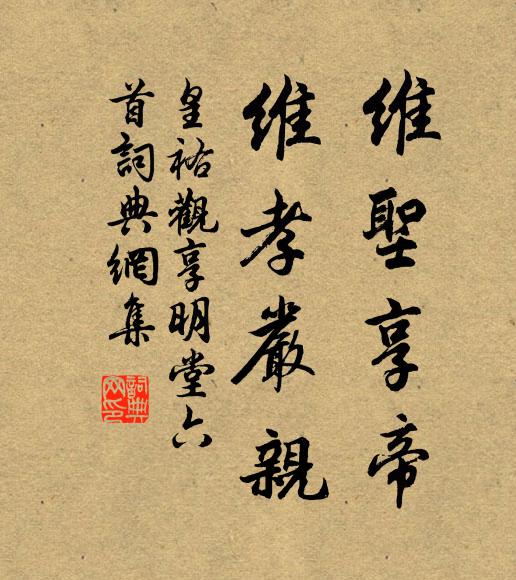 維聖享帝
維孝嚴親
皇祐觀享明堂六
首詞典網集
詞典網印